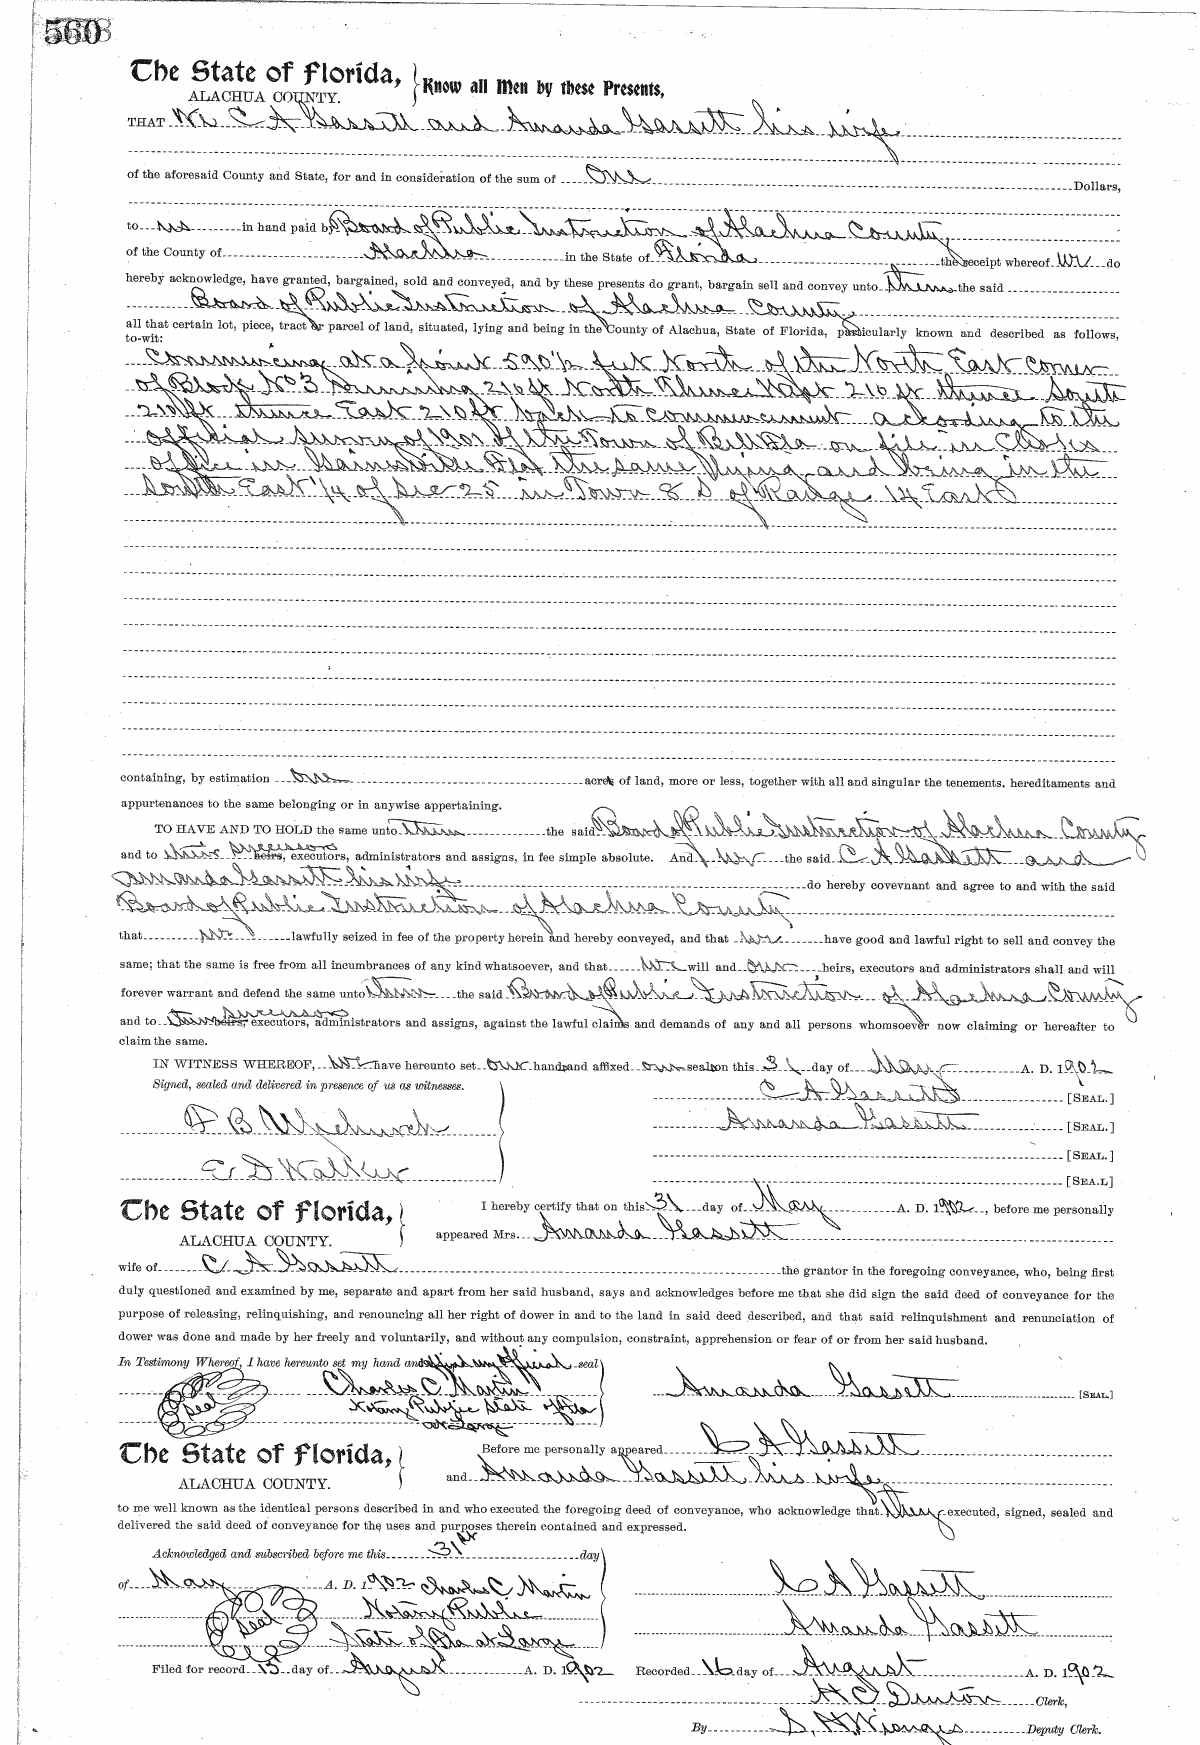 560
The State of Florida,
Know all Men by these Presents,
ALACHUA COUNTY.
THAT We C A Gassett and Amanda Gassett his wife
of the aforesaid County and State, for and in consideration of the sum of One Dollars,
to us in hand paid by Board of Public Instruction of Alachua County
of the County of Alachua in the State of Florida the receipt whereof We do
hereby acknowledge, have granted, bargained, sold and conveyed, and by these presents do grant, bargain sell and convey unto them the said
Board of Public Instruction of Alachua County
all that certain lot, piece, tract or parcel of land, situated, lying and being in the County of Alachua, State of Florida, particularly known and described as follows,
to-wit:
Commencing at a point 590 1/2 feet North of the North East corner
of Block No 3 running 210 ft North Thence West 210 ft thence South
210 ft thence East 210 ft back to commencement acording to the
official survey of 1901 of the Town of Bell Fla on file in Clerks
office in Gainesville Fla the same lying and being in the
South East 1/4 of Sec 25 in Town 8 S of Range 14 East
containing, by estimation one acres of land, more or less, together with all and singular the tenements, hereditaments and
appurtenances to the same belonging or in anywise appertaining.
TO HAVE AND TO HOLD the same unto them the said Board of Public Instruction of Alachua County
and to their successors heirs, executors, administrators and assigns, in fee simple absolute. And we the said C A Gassett and
Amanda Gassett his wife do hereby covevnant and agree to and with the said
Board of Public Instruction of Alachua County
that we lawfully seized in fee of the property herein and hereby conveyed, and that we have good and lawful right to sell and convey the
same; that the same is free from all incumbrances of any kind whatsoever, and that we will and our heirs, executors and administrators shall and will
forever warrant and defend the same unto them the said Board of Public Instruction of Alachua County
and to their successors heirs, executors, administrators and assigns, against the lawful claims and demands of any and all persons whomsoever now claiming or hereafter to
claim the same.
IN WITNESS WHEREOF, we have hereunto set our hands and affixed our seals on this 31 day of May A. D. 1902
Signed, sealed and delivered in presence of us as witnesses.
C A Gassett [SEAL.]
Amanda Gassett [SEAL.]
[SEAL.]
E D Walker
[SEA.L]
The State of Florida,
ALACHUA COUNTY.
I hereby certify that on this 31 day of May A. D. 1902, before me personally
appeared Mrs. Amanda Gassett
wife of C A Gassett the grantor in the foregoing conveyance, who, being first
duly questioned and examined by me, separate and apart from her said husband, says and acknowledges before me that she did sign the said deed of conveyance for the
purpose of releasing, relinquishing, and renouncing all her right of dower in and to the land in said deed described, and that said relinquishment and renunciation of
dower was done and made by her freely and voluntarily, and without any compulsion, constraint, apprehension or fear of or from her said husband.
In Testimony Whereof, I have hereunto set my hand and affixed my official seal
Charles C. Martin
Amanda Gassett [SEAL.]
Seal
Notary Public State of Fla
at Large
The State of Florida,
ALACHUA COUNTY.
Before me personally appeared C A Gassett
and Amanda Gassett his wife
to me well known as the identical persons described in and who executed the foregoing deed of conveyance, who acknowledge that they executed, signed, sealed and
delivered the said deed of conveyance for the uses and purposes therein contained and expressed.
Acknowledged and subscribed before me this 31st day
of May A. D. 1902 Charles C. Martin
C A Gassett
Seal
Notary Public
Amanda Gassett
State of Fla at Large
Filed for record 15 day of August A. D. 1902
Recorded 16 day of August A. D. 1902
H C Denton Clerk,
By S. H. Wienges Deputy Clerk.